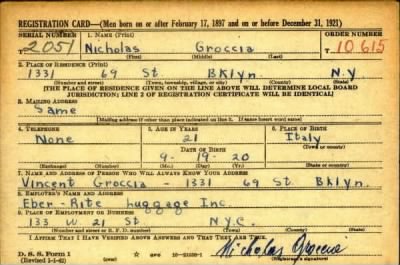 REGISTRATION CARD—(Men born on or after February 17, 1897 and on or before December 31, 1921)
SERIAL NUMBER 1. NAME (Print) ORDER NUMBER
T2051 Nicholas Groccia T10615
(First) (Middle) (Last)
2. PLACE OF RESIDENCE (Print)
1331 69 St. Bklyn. N.Y
(Number and street) (Town, township, village, or city) (County) (State)
[THE PLACE OF RESIDENCE GIVEN ON THE LINE ABOVE WILL DETERMINE LOCAL BOARD
JURISDICTION; LINE 2 OF REGISTRATION CERTIFICATE WILL BE IDENTICAL]
3. MAILING ADDRESS
Same
[Mailing address if other than place indicated on line 2. If same insert word same]
4. TELEPHONE 5. AGE IN YEARS 6. PLACE OF BIRTH
None 21 Italy
DATE OF BIRTH (Town or county)
9- 19- 20
(Exchange) (Number) (Mo.) (Day) (Yr.) (State or country)
7. NAME AND ADDRESS OF PERSON WHO WILL ALWAYS KNOW YOUR ADDRESS
Vincent Groccia - 1331 69 St. Bklyn.
8. EMPLOYER'S NAME AND ADDRESS
Eber-Rite Luggage Inc.
9. PLACE OF EMPLOYMENT OR BUSINESS
133 W. 21 St N.Y.C.
(Number and street or R. F. D. number) (Town) (County) (State)
I AFFIRM THAT I HAVE VERIFIED ABOVE ANSWERS AND THAT THEY ARE TRUE.
D. S. S. Form 1
(Revised 1-1-42) (over)
Nicholas Groccia